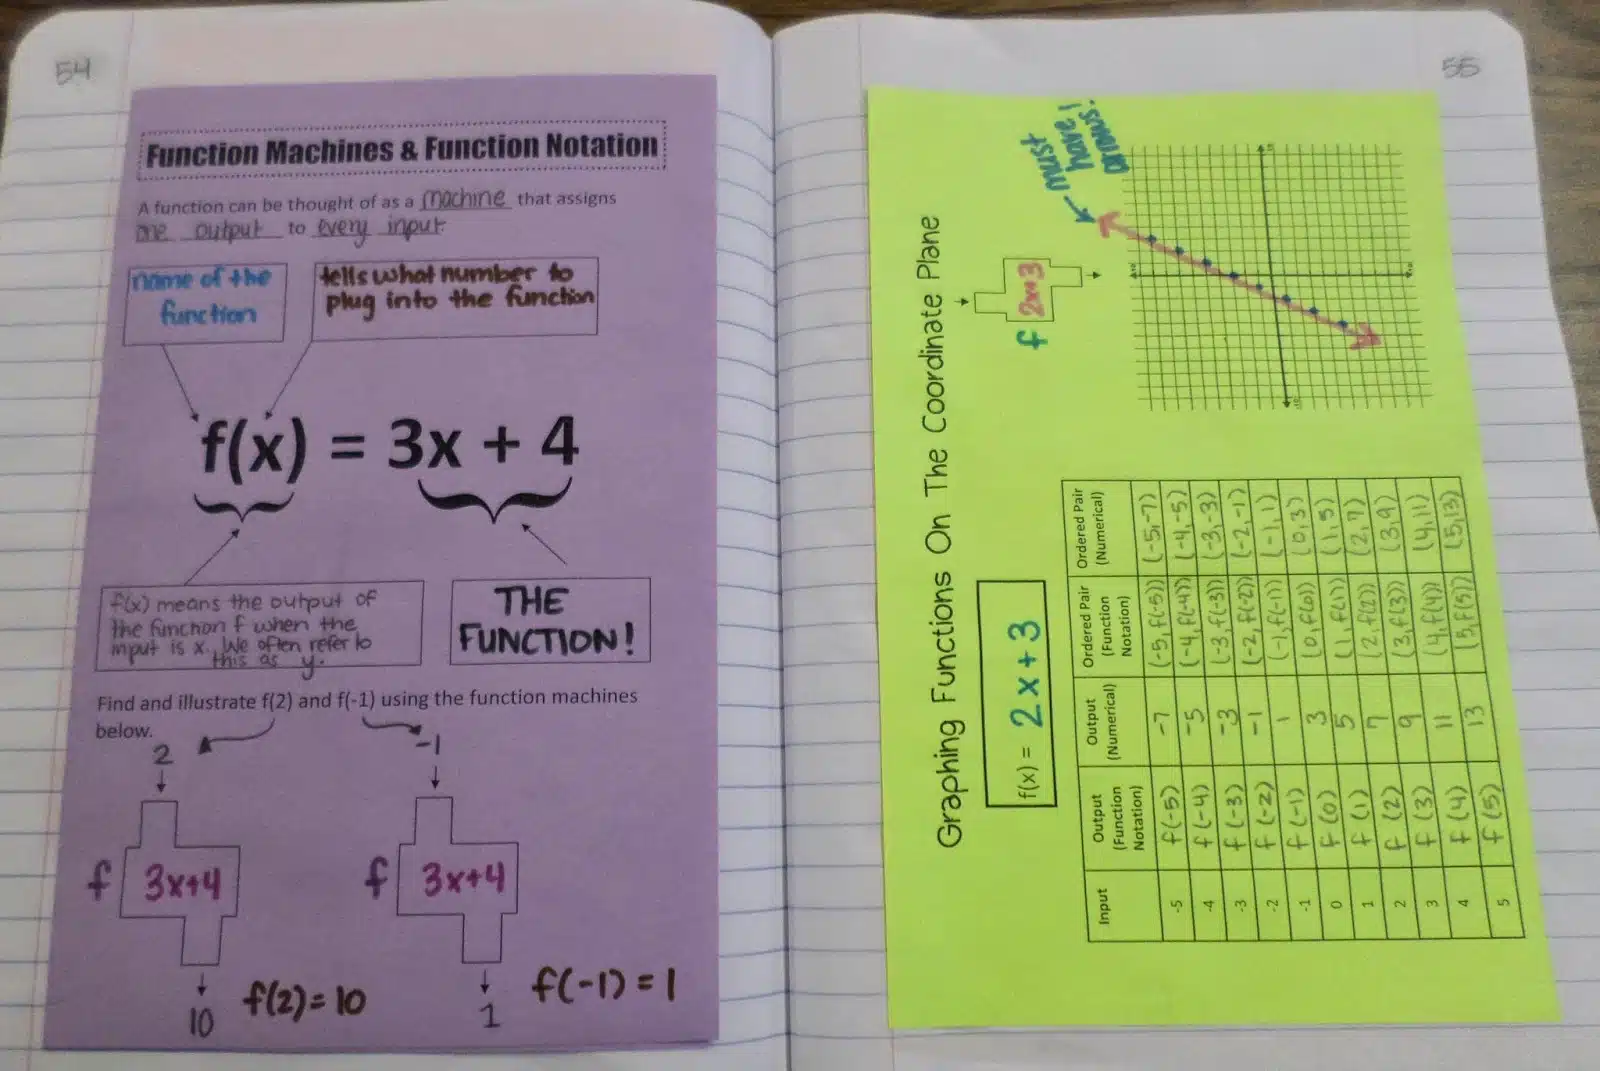 54
Function Machines & Function Notation
A function can be thought of as a machine that assigns
one output to every input.
name of the
function
tells what number to
plug into the function
f(x) = 3x + 4
f(x) means the output of
the function f when the
input is x. We often refer to
this as y.
THE
FUNCTION!
Find and illustrate f(2) and f(-1) using the function machines
below.
2
-1
f 3x+4
f 3x+4
10
f(2)=10
1
f(-1)=1
55
Graphing Functions On The Coordinate Plane
f(x) = 2x+3
f 2x+3
must
have
arrows!
Input Output (Function Notation) Output (Numerical) Ordered Pair (Function Notation) Ordered Pair (Numerical)
-5 f(-5) -7 (-5, f(-5)) (-5,-7)
-4 f(-4) -5 (-4, f(-4)) (-4,-5)
-3 f(-3) -3 (-3, f(-3)) (-3,-3)
-2 f(-2) -1 (-2, f(-2)) (-2,-1)
-1 f(-1) 1 (-1, f(-1)) (-1,1)
0 f(0) 3 (0, f(0)) (0,3)
1 f(1) 5 (1, f(1)) (1,5)
2 f(2) 7 (2, f(2)) (2,7)
3 f(3) 9 (3, f(3)) (3,9)
4 f(4) 11 (4, f(4)) (4,11)
5 f(5) 13 (5, f(5)) (5,13)